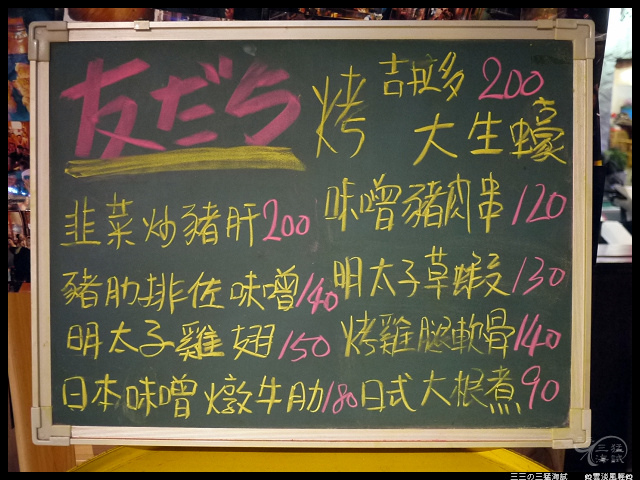 友だち
烤 吉拉多 200
大生蠔
韭菜炒豬肝200
味噌豬肉串120
豬肋排佐味噌140
明太子草蝦130
明太子雞翅150
烤雞腿軟骨140
日本味噌燉牛肋180
日式大根煮90
三猛
海試
三三の三猛海試
雲淡風輕